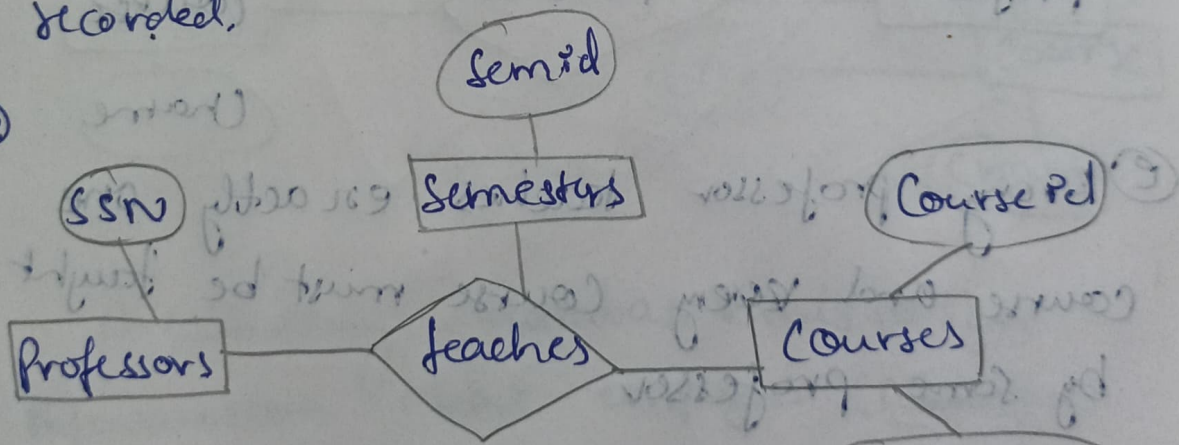 recorded.
Semid
SSN
Semesters
Courseid
Professors
teaches
Courses